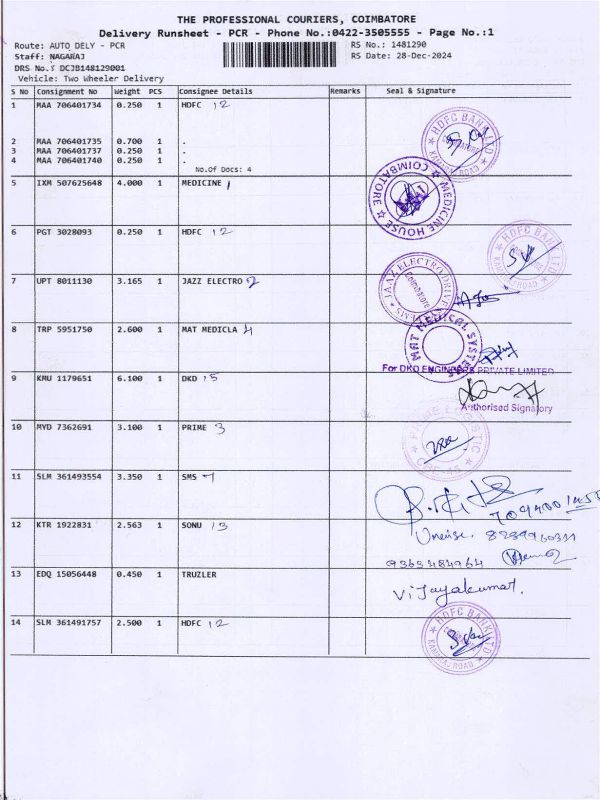 THE PROFESSIONAL COURIERS, COIMBATORE
Delivery Runsheet - PCR - Phone No.:0422-3505555 - Page No.:1
Route: AUTO DELY - PCR RS No.: 1481290
Staff: NAGARAJ RS Date: 28-Dec-2024
DRS No.: DCJB148129001
Vehicle: Two Wheeler Delivery
S No Consignment No Weight PCS Consignee Details Remarks Seal & Signature
1 MAA 706401734 0.250 1 HDFC 12
HDFC BANK LTD
2 MAA 706401735 0.700 1 .
3 MAA 706401737 0.250 1 .
4 MAA 706401740 0.250 1 .
No.Of Docs: 4
5 IXM 507625648 4.000 1 MEDICINE 1
MEDICINE HOUSE COIMBATORE
6 PGT 3028093 0.250 1 HDFC 12
HDFC BANK LTD
7 UPT 8011130 3.165 1 JAZZ ELECTRO 2
Coimbatore
8 TRP 5951750 2.600 1 MAT MEDICLA 4
MAT MEDICAL SYSTEMS
For DKD ENGINEERS PRIVATE LIMITED
9 KMU 1179651 6.100 1 DKD 15
Authorised Signatory
10 MYD 7362691 3.100 1 PRIME 3
11 SLM 361493554 3.350 1 SMS 7
12 KTR 1922831 2.563 1 SONU 13
9363484964
13 EDQ 15056448 0.450 1 TRUZLER
Vijayakumar.
14 SLM 361491757 2.500 1 HDFC 12
HDFC BANK LTD